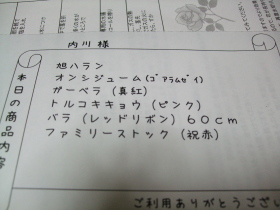 内川様
本日の商品内容
旭ハラン
オンシジューム(ゴアラムゼイ)
ガーベラ (真紅)
トルコキキョウ (ピンク)
バラ (レッドリボン) 60cm
ファミリーストック (祝赤)
ご利用ありがとうござい